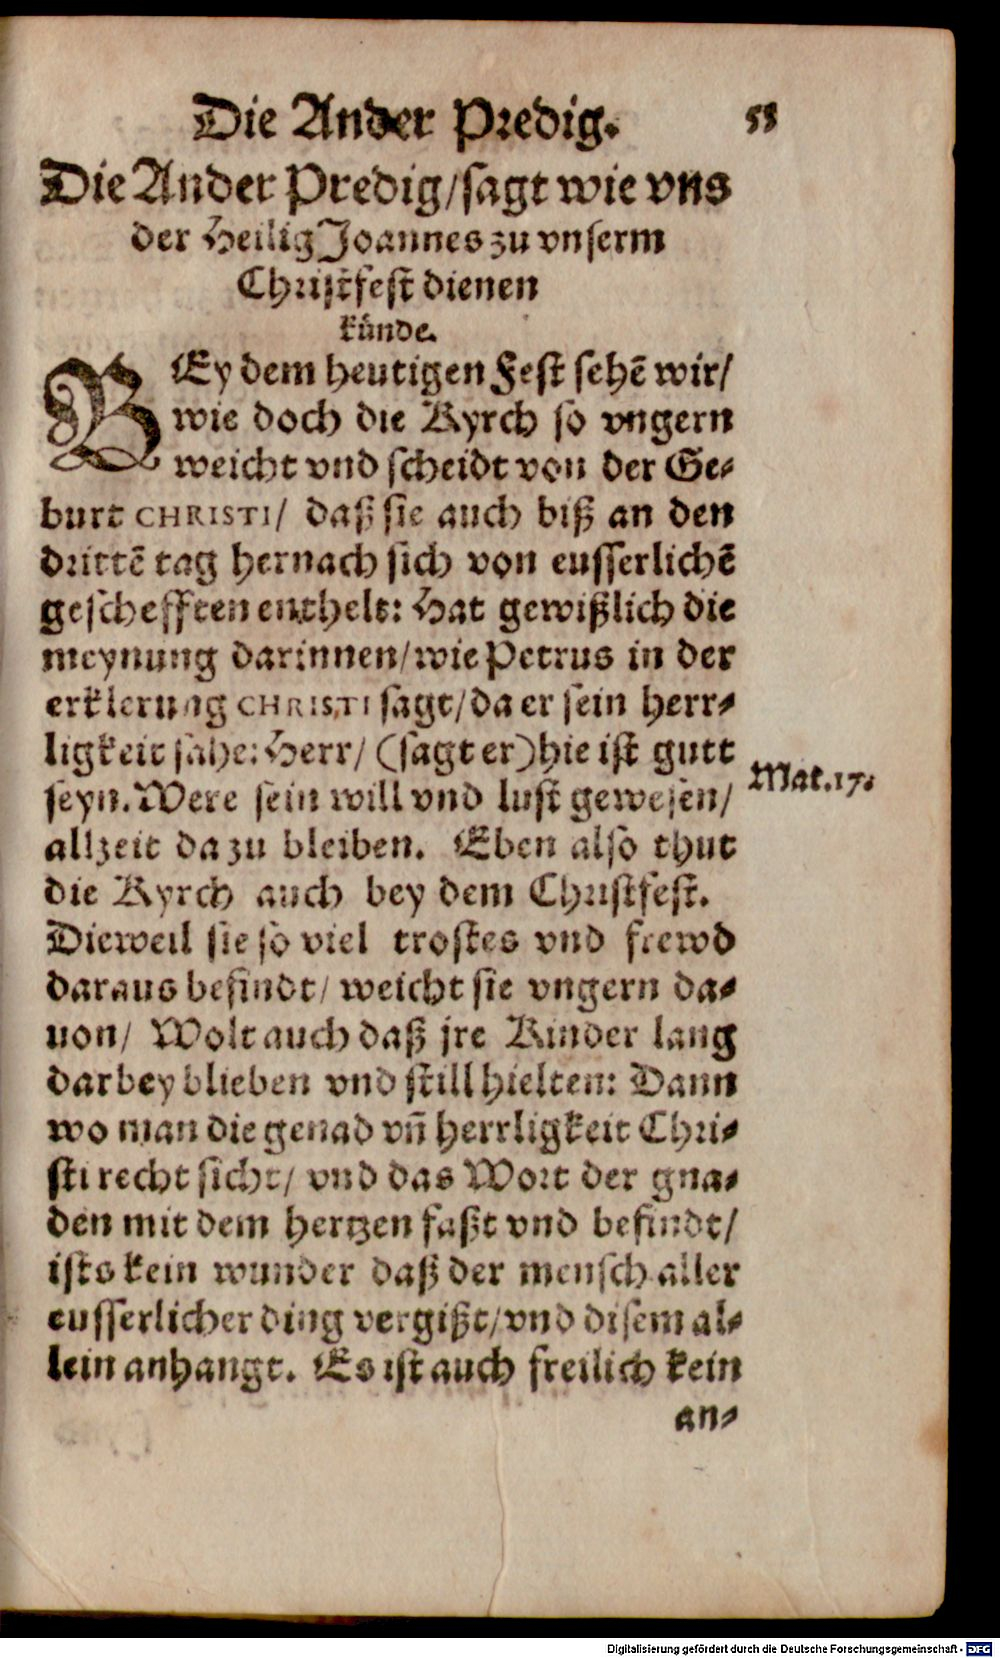 Die Ander Predig. 58
Die Ander Predig/ sagt wie vns
der Heilig Joannes zu vnserm
Christfest dienen
künde.
BEy dem heutigen Fest sehẽ wir/
wie doch die Kyrch so vngern
weicht vnd scheidt von der Ge-
burt CHRISTI/ daß sie auch biß an den
drittẽ tag hernach sich von eusserlichẽ
geschefften enthelt: Hat gewißlich die
meynung darinnen/ wie Petrus in der
erklerung CHRISTI sagt/ da er sein herr-
ligkeit sahe: Herr/ (sagt er) hie ist gutt
seyn. Were sein will vnd lust gewesen/
Mat. 17.
allzeit da zu bleiben. Eben also thut
die Kyrch auch bey dem Christfest.
Dieweil sie so viel trostes vnd frewd
daraus befindt/ weicht sie vngern da-
uon/ Wolt auch daß jre Kinder lang
darbey blieben vnd still hielten: Dann
wo man die genad vñ herrligkeit Chri-
sti recht sicht/ vnd das Wort der gna-
den mit dem hertzen faßt vnd befindt/
ists kein wunder daß der mensch aller
eusserlicher ding vergißt/ vnd disem al-
lein anhangt. Es ist auch freilich kein
an-
Digitalisierung gefördert durch die Deutsche Forschungsgemeinschaft - DFG